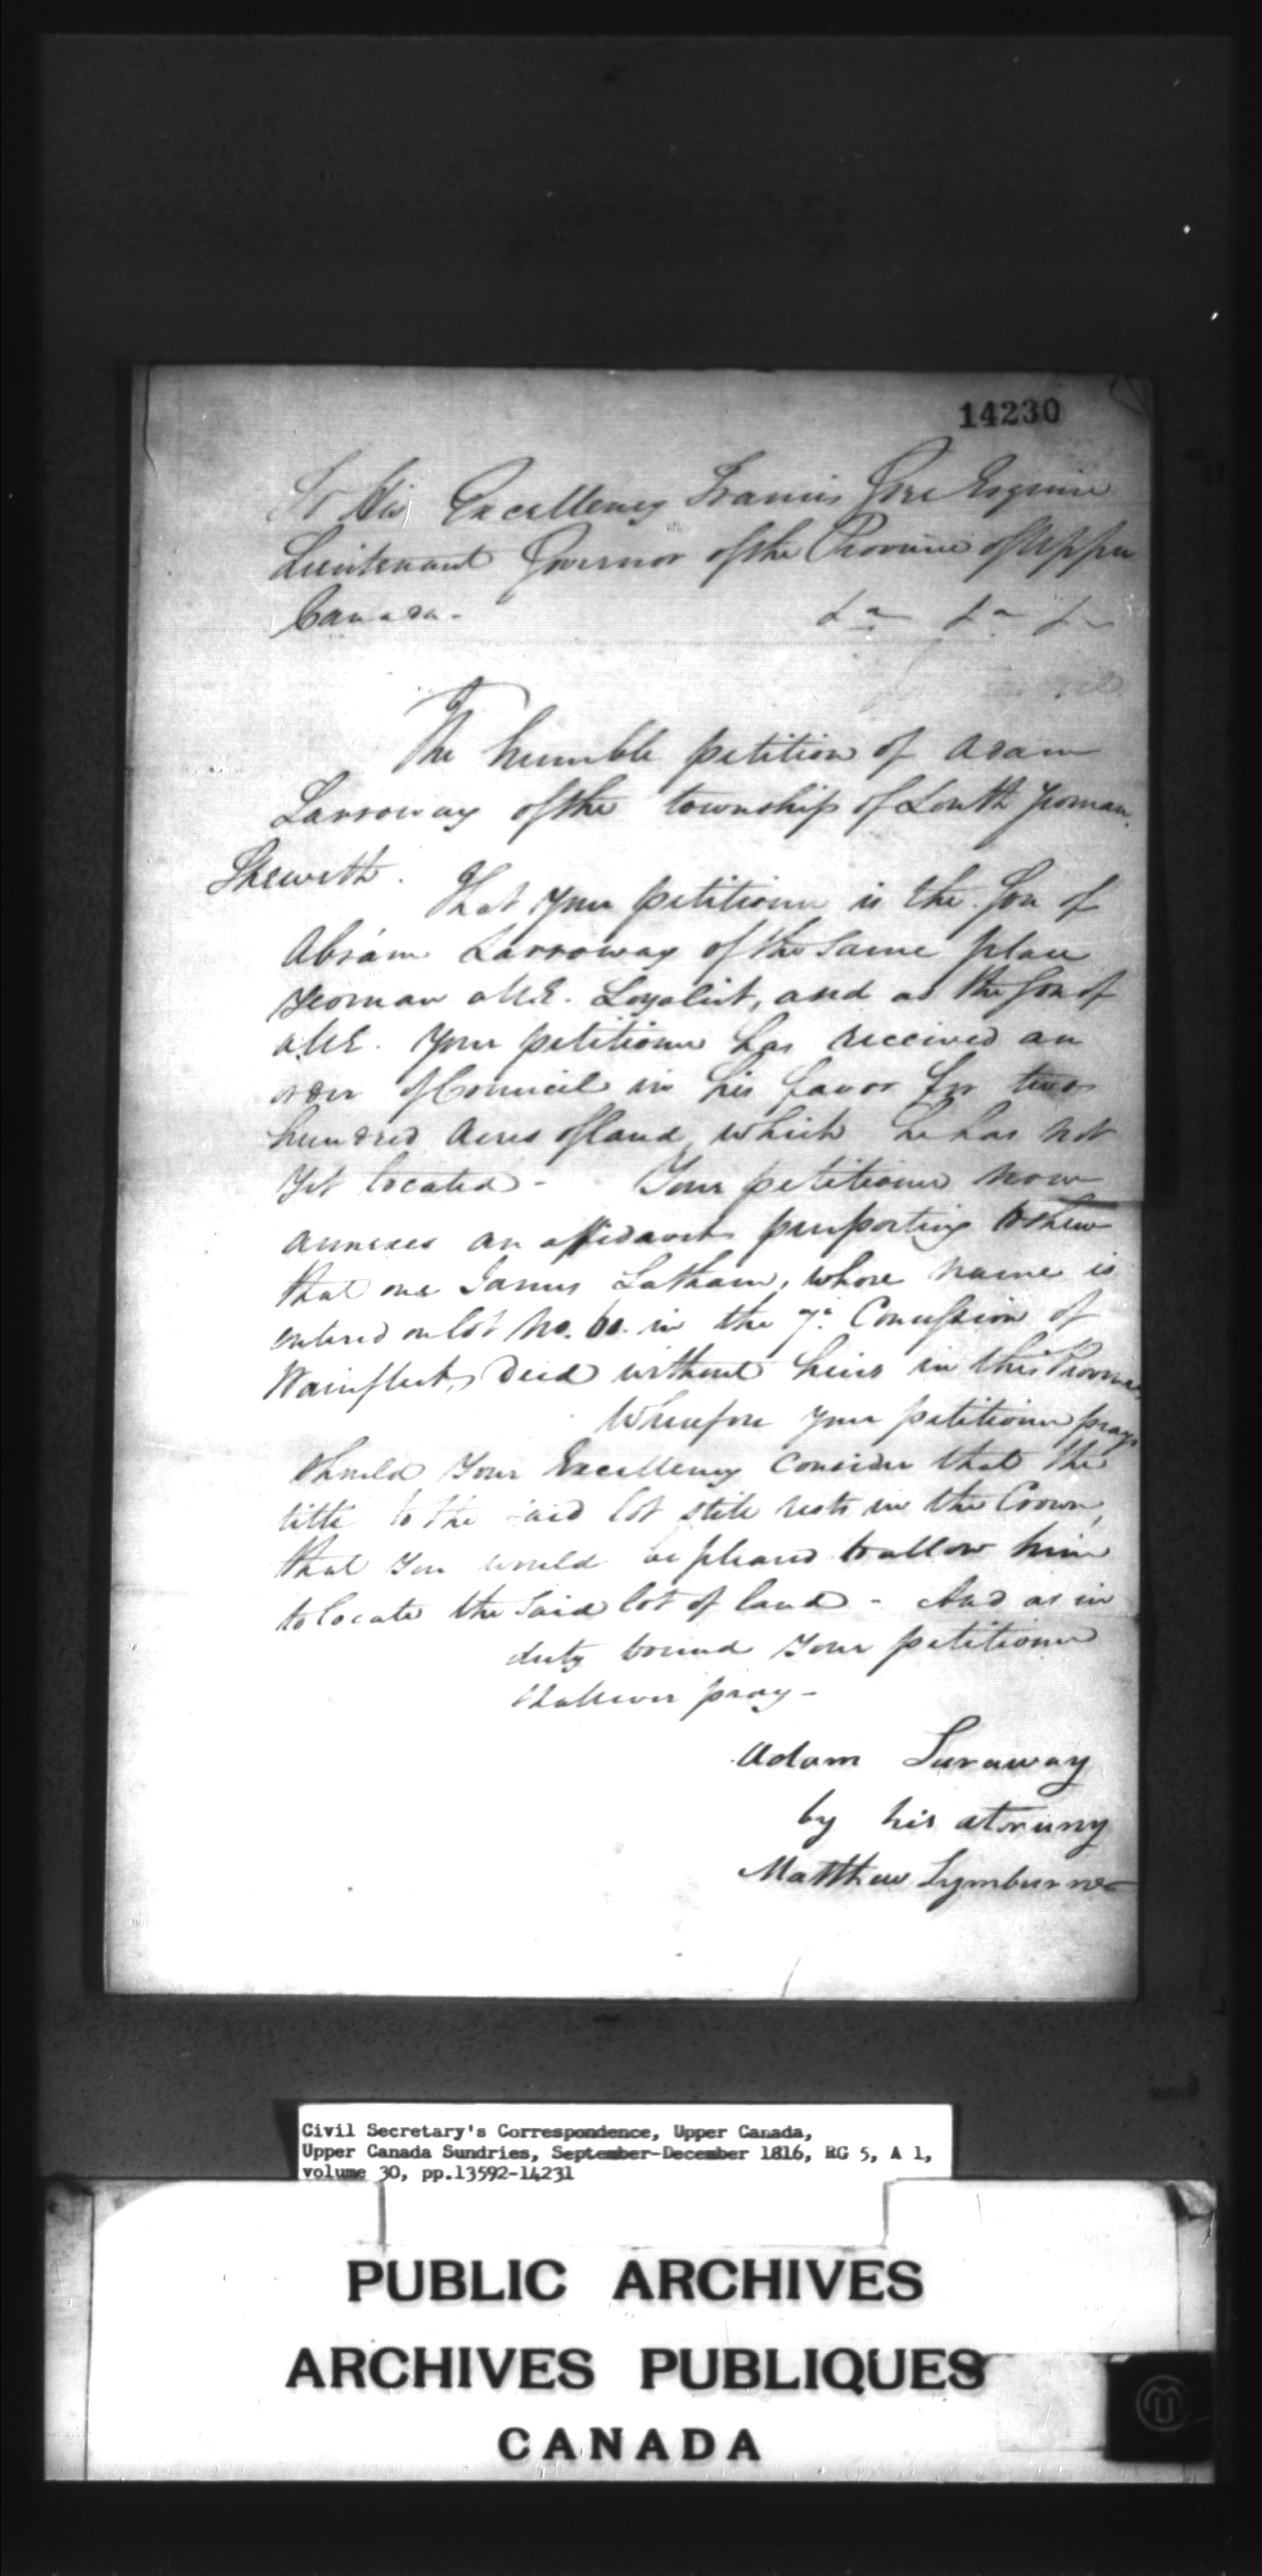 14230
To His Excellency Francis Gore Esquire
Lieutenant Governor of the Province of Upper
Canada. &a &a &
The humble petition of Adam
Larroway of the township of Louth Yeoman.
Sheweth.
That your petitioner is the son of
Abram Larroway of the same place
Yeoman a U.E. Loyalist, and as the son of
a U.E. Your petitioner has received an
order of Council in his favor for two
hundred Acres of land, which he has not
yet located - Your petitioner now
annexes an affidavit purporting to shew
that one James Latham, whose name is
entered on lot No. in the 7th Concession of
Wainfleet, died without heirs in this Province,
Wherefore your petitioner prays
should Your Excellency consider that the
title to the said lot still rests in the Crown,
that you would be pleased to allow him
to locate the said lot of land - And as in
duty bound Your petitioner
shall ever pray -
Adam Luraway
by his atoruny
Matthew Lymburner
Civil Secretary's Correspondence, Upper Canada,
Upper Canada Sundries, September-December 1816, RG 5, A 1,
volume 30, pp.13592-14231
PUBLIC ARCHIVES
ARCHIVES PUBLIQUES
CANADA